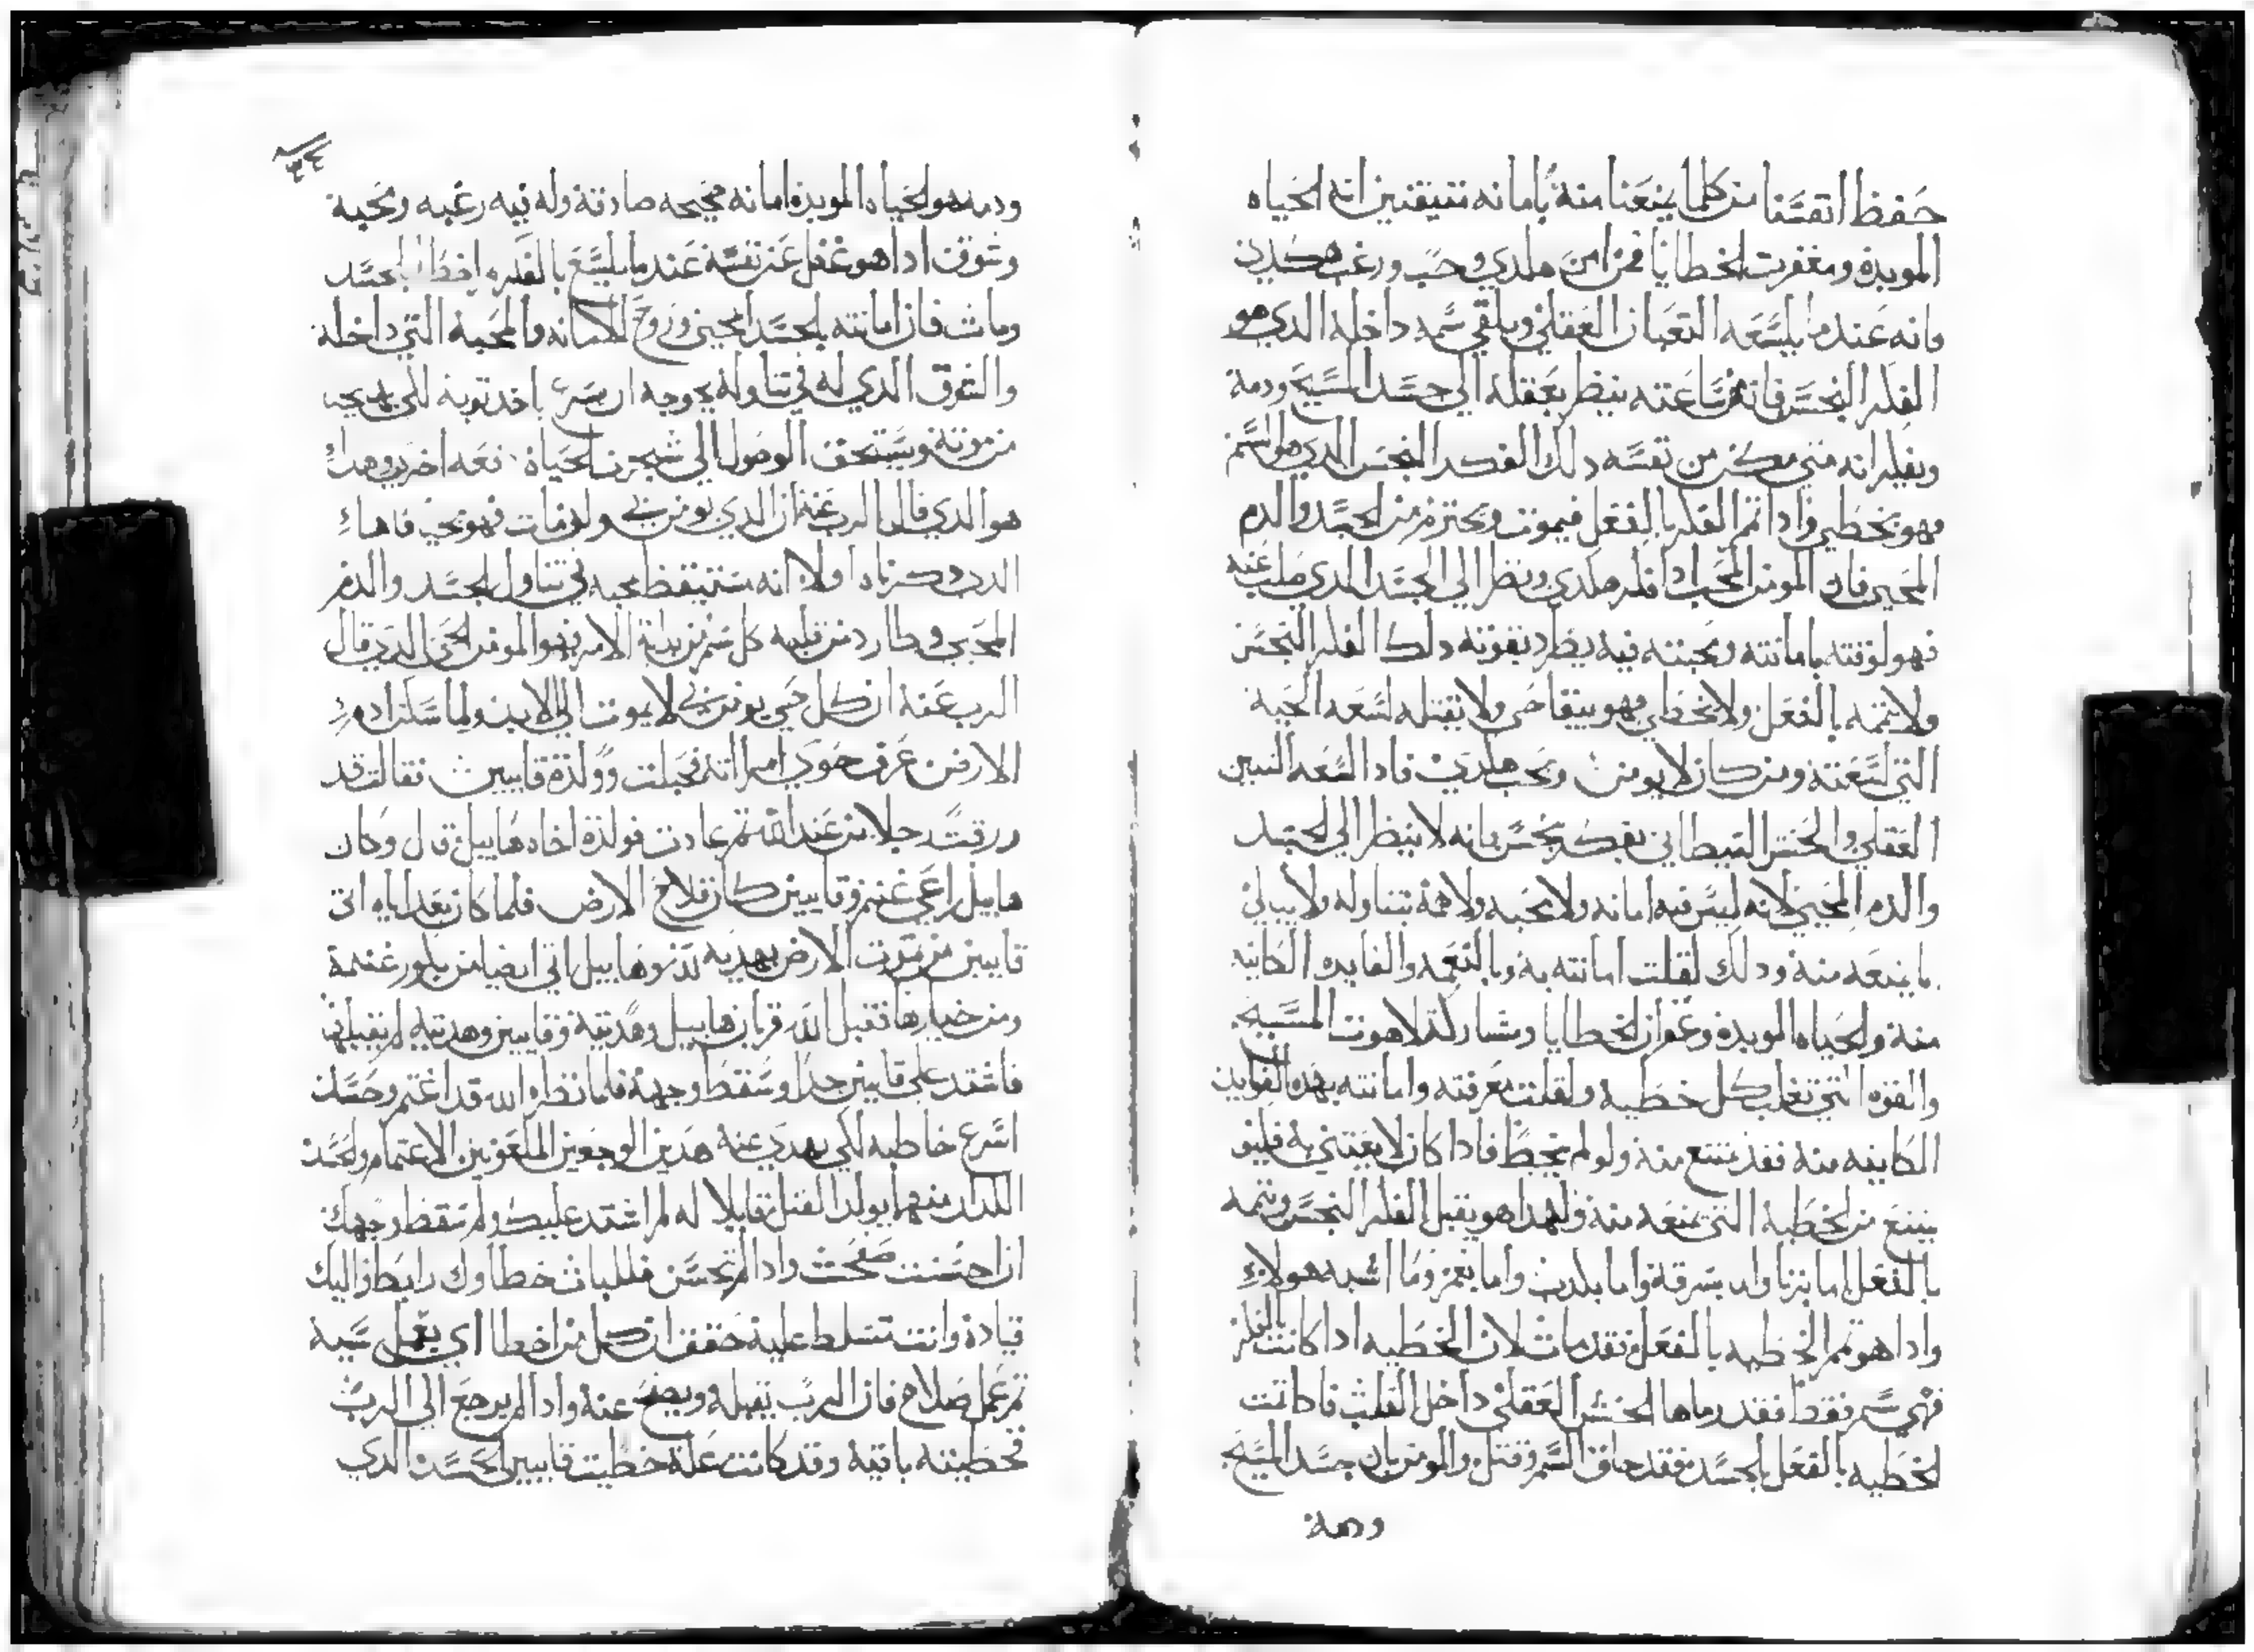 حفظ انفسنا من كلما يمنعنا منه بامانه متيقنين انه الحياه
المويده ومغفرت الخطايا فمن امن هلدي وحب ورغب هكدي
فانه عندما يلسعه التعبان العقلي ويلقي سمه داخله الدي هو
الفلر النجس فانه من ساعته ينظر بعقله الي جسد المسيح ودمه
ويفلر انه متي مكن من نفسه دلك الفكر النجس الدي هو السم
فهو يخطي وادا اتم الفلر بالفعل فيموت ويحترم من الجسد والدم
المحيي فان المومن المحب ادا فلر هلدي ونظر الي الجسد الدي صلب عنه
فهو لوقته بامانته ومحبته فيه يطرد بقوته دلك الفلر النجس
ولا يتمه بالفعل ولا يخطي فهو يبقا حي ولا يقتله لسعه الحيه
التي لسعته ومن كان لا يومن ويحب هلدي فادا لسعه التنين
العقلي والحنش الشيطاني بفكر نجس فانه لا ينظر الي الجسد
والدم المحيي لانه ليس فيه امانه ولا محبه ولا همة بتناوله ولا يبالي
بما يمنعه منه ودلك لقلت امانته به وبالنعمه والفايده الكاينه
منه والحياه المويده وغفران الخطايا ومشاركة لاهوت المسيح
والقوه التي تغلب كل خطيه ولقلت معرفته وامانته بهده الفوايد
الكاينه منه فقد يمتنع منه ولو لم يخط فادا كان لا يعتني به فليف
يمتنع من الخطيه التي تمنعه منه ولهدا هو يقبل الفلر النجس ويتمه
بالفعل اما بزنا واما بسرقة واما بلدب واما بغمز وما اشبه هولاء
وادا هو تمم الخطيه بالفعل فقد مات لان الخطيه ادا كانت بالفلر
فهي سم فقط فقد رماها الحنش العقلي داخل القلب فادا تمت
الخطيه بالفعل بالجسد فقد حاق السم وقتل والمومن بان جسد المسيح
ودمه
٣٤
ودمه هو الحياه المويده امانه صحيحه صادقة وله فيه رغبه ومحبة
وشوق ادا هو غفل عن نفسه عندما يلسع بالفلره اخطا بالجسد
ومات فان امانته بالجسد المحيي وروح الامانه والمحبة التي داخله
والشوق الدي له في تناوله يوجه ان يسرع ياخد توبة للي يحيي
من موتة ويستحق الوصول الي شجرت الحياة دفعه اخري وهدا
هو الدي قال الرب عنه ان الدي يومن بي ولو مات فهو يحيي فاما
الدي دكرناه اولا انه مستيقظ محبه في تناول الجسد والدم
المحيي وطارد من قلبه كل سم من بداية الامر فهو المومن الحي الدي قال
الرب عنه ان كل حي يومن بي لا يموت الي الابد ولما سكن ادم
الارض عرف حوي امراته فحبلت وولدة قايين فقالت قد
ررقت رجلا من عند الله تم عادت فولدة اخاه هابيل قال وكان
هابيل راعي غنم وقايين كان فلاح الارض فلما كان بعد ايام اتي
قايين من تمرت الارض بهديه لله وهابيل اتي ايضا من بلور غنمة
ومن خيارها فتقبل الله قربان هابيل وهديته وقايين وهديته لم يقبلها
فاشتد علي قايين جدا وسقط وجهة فلما نظر الله قد اغتم وحسد
اسرع خاطبه للي يهدي عنه هدين الوجعين الملعونين الاغتمام والحسد
اللدان منهما يولد القتل قايلا له لم اشتد عليك ولم سقط وجهك
ان احسنت صفحت وادا لم تحسن فللباب خطاوك رابط واليك
قيادة وانت تتسلط عليه حقق ان كل من اخطا اي بفعل سية
تم عمل صلاح فان الرب يقبله ويصفح عنه وادا لم يرجع الي الرب
فخطيته باقية وقد كانت علة خطيت قايين الحسد الدي